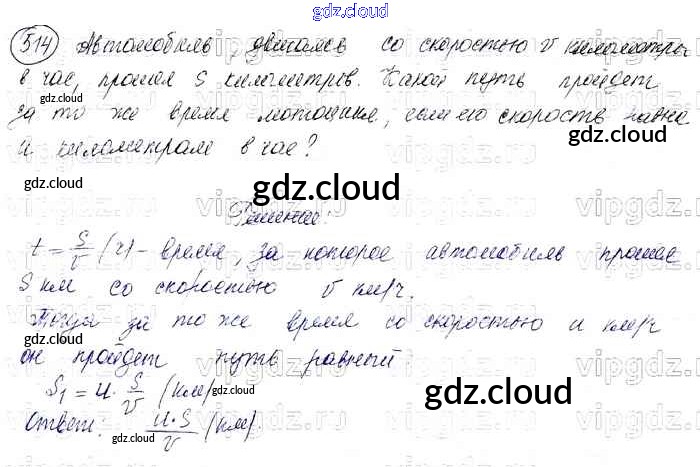 gdz.cloud
514 Автомобиль, двигаясь со скоростью v километров
в час, прошел S километров. Какой путь пройдет
за то же время мотоцикл, если его скорость равна
u километрам в час?
Решение:
t = S/v (ч) - время, за которое автомобиль прошел
S км со скоростью v км/ч.
Тогда за то же время со скоростью u км/ч
он пройдет путь равный
S₁ = u · S/v (км)
Ответ: u·S/v (км).
gdz.cloud
vipgdz.ru